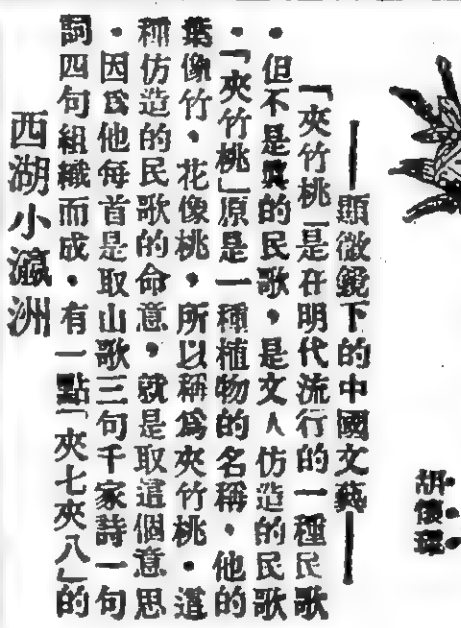 胡懷琛
——顯微鏡下的中國文藝——
「夾竹桃」是在明代流行的一種民歌
・但不是眞的民歌，是文人仿造的民歌
・「夾竹桃」原是一種植物的名稱・他的
葉像竹・花像桃，所以稱爲夾竹桃・這
種仿造的民歌的命意，就是取這個意思
・因爲他每首是取山歌三句千家詩一句
詞四句組織而成・有一點「夾七夾八」的
西湖小瀛洲